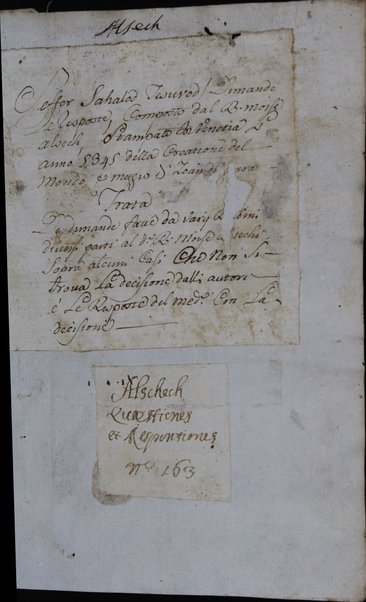 Alsech
Seffer Sahalod Tesuvod / Dimande
e Resposte / Composto dal R. Moise
alsech Stambato in Venetia L
anno 5345 della Creatione del
Mondo, e messio di Zoan di Gara
Trata
De dimande fatte da varij Rabini
diversi parti al d.º R. Moise Alsech
Sopra alcuni Casi Che Non Si
trova La decisione dalli autori
é Le Resposte del med.º Con La
decisione
Alschech
Quæstiones
et Responsiones
nº 163